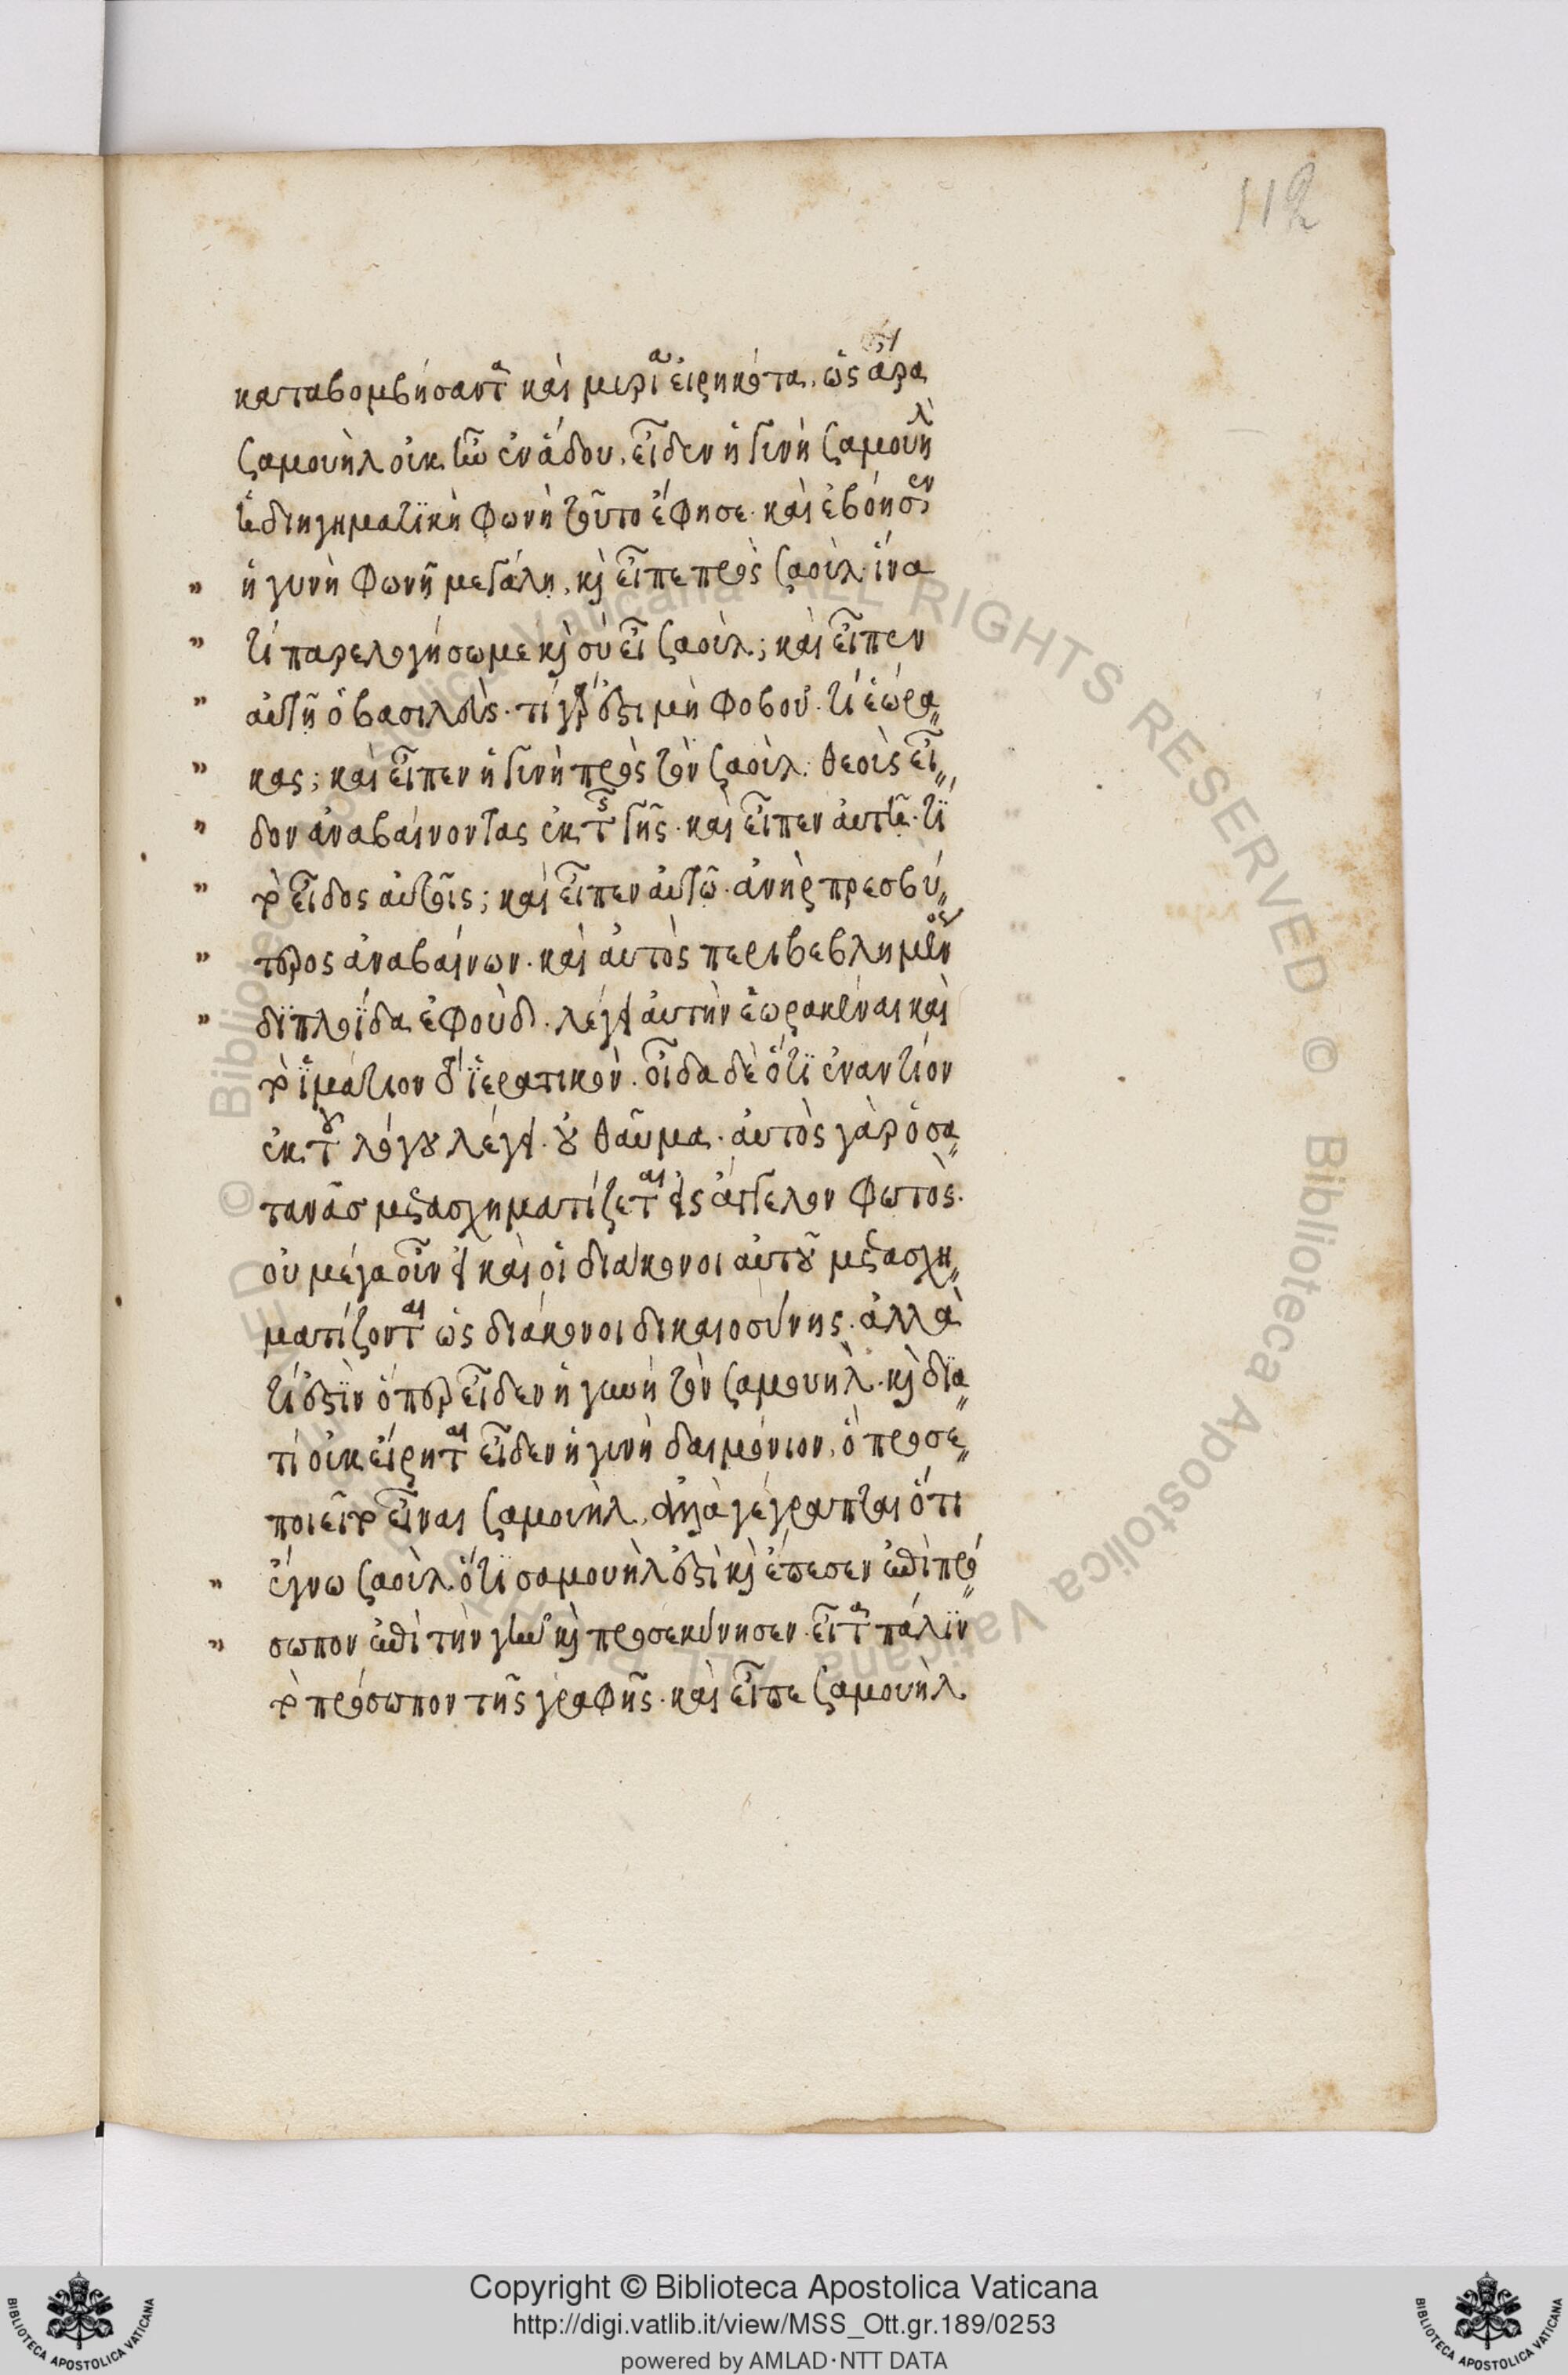 112
καταβομβήσαντα καὶ μυρία εἰρηκότα, ὡς ἄρα
σαμουὴλ οὐκ ἦν ἐν ἅδου. εἶδεν ἡ γυνὴ σαμουὴλ
ἡ διηγηματϊκὴ φωνὴ τοῦτο ἔφησε. καὶ ἐβόησεν
" ἡ γυνὴ φωνῇ μεγάλη, καὶ εἶπε πρὸς σαούλ. ἵνα
" τί παρελογήσω με καὶ σὺ εἶ σαούλ; καὶ εἶπεν
" αὐτῇ ὁ βασιλεὺς. τί γάρ ἐστι μὴ φοβοῦ. τί ἑώρα
" κας; καὶ εἶπεν ἡ γυνὴ πρὸς τὸν σαούλ. θεοὺς εἶ
" δον ἀναβαίνοντας ἐκ τῆς γῆς. καὶ εἶπεν αὐτῇ. τί
" τὸ εἶδος αὐτοῖς; καὶ εἶπεν αὐτῷ. ἀνὴρ πρεσβύ
" τερος ἀναβαίνων. καὶ αὐτὸς περιβεβλημένος
" διπλοΐδα ἐφούδ. λέγει αὐτὴν ἑωρακέναι καὶ
τὸ ἱμάτιον τὸ ἱερατικόν. οἶδα δὲ ὅτι ἐναντίον
ἐκ τοῦ λόγου λέγει. οὐ θαῦμα. αὐτὸς γὰρ ὁ σα
τανᾶσ μετασχηματίζεται εἰς ἄγγελον φωτὸς.
οὐ μέγα οὖν εἰ καὶ οἱ διάκονοι αὐτοῦ μετασχη
ματίζονται ὡς διάκονοι δικαιοσύνης. ἀλλὰ
τί ἐστὶν ὅπερ εἶδεν ἡ γυνὴ τὸν σαμουὴλ. καὶ δϊα
τί οὐκ εἴρηται εἶδεν ἡ γυνὴ δαιμόνιον, ὃ προσε
ποιεῖτο εἶναι σαμουὴλ, ἀλλὰ γέγραπται ὅτι
" ἔγνω σαοὺλ ὅτι σαμουὴλ ἐστὶ καὶ ἔπεσεν ἐπὶ πρό
" σωπον ἐπὶ τὴν γῆν καὶ προσεκύνησεν. εἶτα πάλϊν
τὸ πρόσωπον τῆς γραφῆς. καὶ εἶπε σαμουὴλ
© Biblioteca Apostolica Vaticana ALL RIGHTS RESERVED © Biblioteca Apostolica Vaticana ALL RIGHTS RESERVED
Copyright © Biblioteca Apostolica Vaticana
http://digi.vatlib.it/view/MSS_Ott.gr.189/0253
powered by AMLAD·NTT DATA
BIBLIOTECA APOSTOLICA VATICANA
BIBLIOTECA APOSTOLICA VATICANA